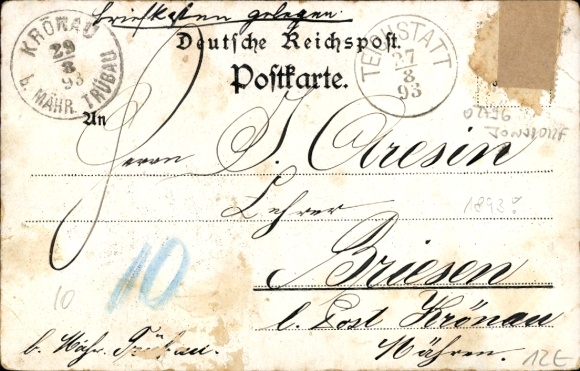 Briefkasten gelegen.
KRÖNAU
29
8
93
b. MÄHR. TRÜBAU
Deutsche Reichspost.
Postkarte.
27
8
93
An
02796
JONSDORF
Herrn J. Aresin
Lehrer
1893?
Briesen
10
10
b. Mähr. Trübau.
Post Krönau
Mähren.
12E